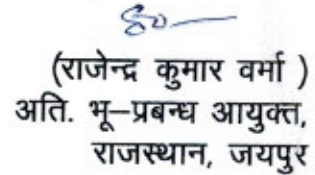 (राजेन्द्र कुमार वर्मा )
अति. भू–प्रबन्ध आयुक्त,
राजस्थान, जयपुर